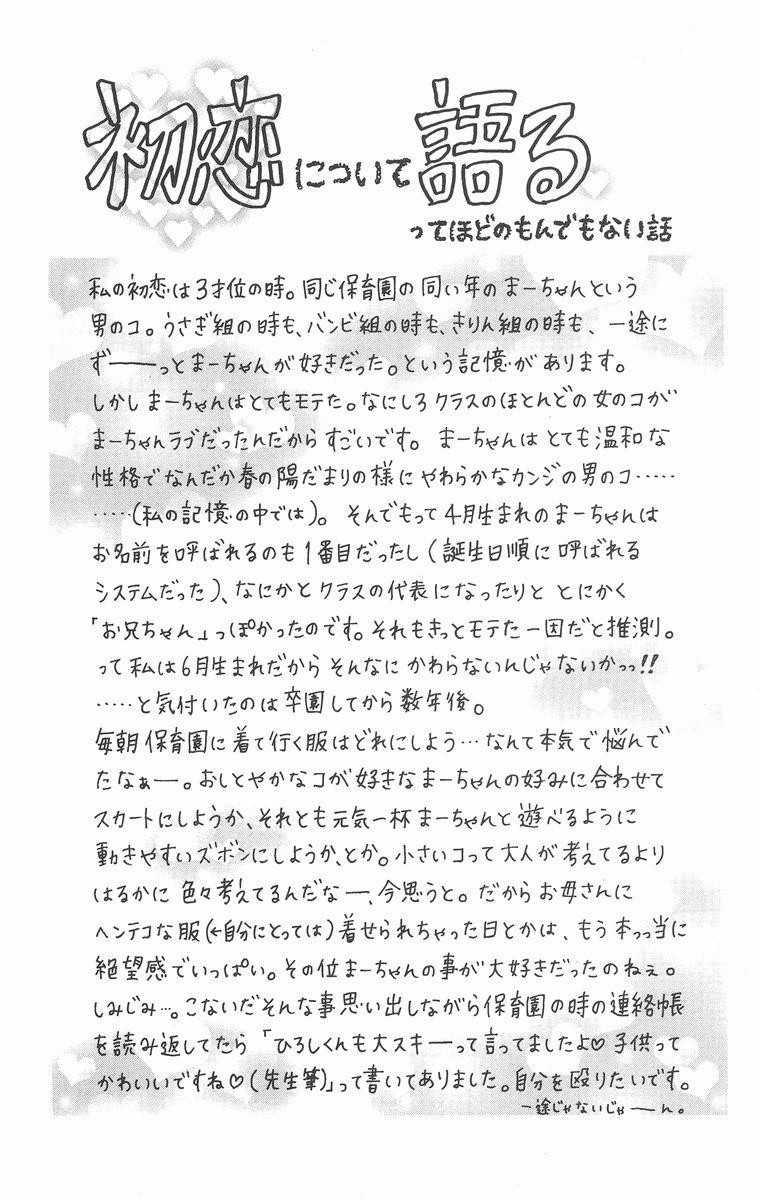 初恋について語る
ってほどのもんでもない話
私の初恋は3才位の時。同じ保育園の同い年のまーちゃんという
男のコ。うさぎ組の時も、バンビ組の時も、きりん組の時も、一途に
ず――っとまーちゃんが好きだった。という記憶があります。
しかしまーちゃんはとてもモテた。なにしろクラスのほとんどの女のコが
まーちゃんラブだったんだからすごいです。まーちゃんはとても温和な
性格でなんだか春の陽だまりの様にやわらかなカンジの男のコ……
……(私の記憶の中では)。そんでもって4月生まれのまーちゃんは
お名前を呼ばれるのも1番目だったし(誕生日順に呼ばれる
システムだった)、なにかとクラスの代表になったりととにかく
「お兄ちゃん」っぽかったのです。それもきっとモテた一因だと推測。
って私は6月生まれだからそんなにかわらないんじゃないかっっ!!
……と気付いたのは卒園してから数年後。
毎朝保育園に着て行く服はどれにしよう…なんて本気で悩んで
たなぁー。おしとやかなコが好きなまーちゃんの好みに合わせて
スカートにしようか、それとも元気一杯まーちゃんと遊べるように
動きやすいズボンにしようか、とか。小さいコって大人が考えてるより
はるかに色々考えてるんだなー、今思うと。だからお母さんに
ヘンテコな服(←自分にとっては)着せられちゃった日とかは、もう本っっ当に
絶望感でいっぱい。その位まーちゃんの事が大好きだったのねぇ。
しみじみ…。こないだそんな事思い出しながら保育園の時の連絡帳
を読み返してたら「ひろしくんも大スキーって言ってましたよ♡子供って
かわいいですね♡(先生筆)」って書いてありました。自分を殴りたいです。
一途じゃないじゃーん。